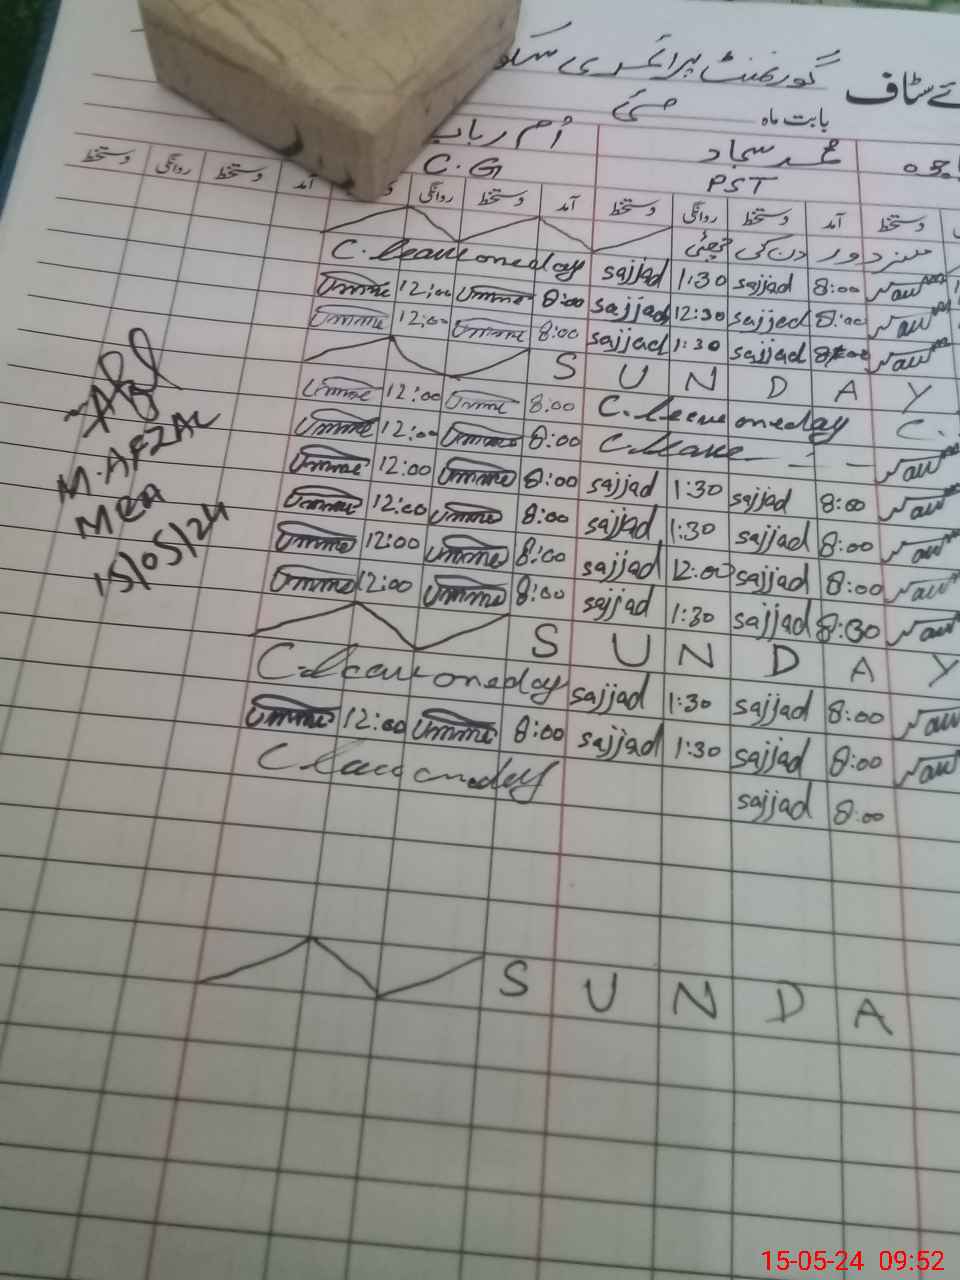 گورنمنٹ پرائمری سکو
ئے سٹاف
بابت ماہ مئی
محمد سجاد ام رباب
PST C.G
دستخط آمد دستخط روانگی دستخط آمد دستخط روانگی آمد دستخط روانگی دستخط
مزدور دن کی چھٹی
C. leave oneday sajjad 1:30 sajjad 8:00
Umme 12:00 Umme 8:00 sajjad 12:30 sajjad 8:00
Umme 12:00 Umme 8:00 sajjad 1:30 sajjad 8:00
S U N D A Y
Umme 12:00 Umme 8:00 C. leave oneday C.
Umme 12:00 Umme 8:00 C. leave
Umme 12:00 Umme 8:00 sajjad 1:30 sajjad 8:00
Umme 12:00 Umme 8:00 sajjad 1:30 sajjad 8:00
Umme 12:00 Umme 8:00 sajjad 12:00 sajjad 8:00
Umme 12:00 Umme 8:00 sajjad 1:30 sajjad 8:30
S U N D A Y
C. leave oneday sajjad 1:30 sajjad 8:00
Umme 12:00 Umme 8:00 sajjad 1:30 sajjad 8:00
C leave oneday sajjad 8:00
S U N D A
M. AFZAL
MEA
15/05/24
15-05-24 09:52